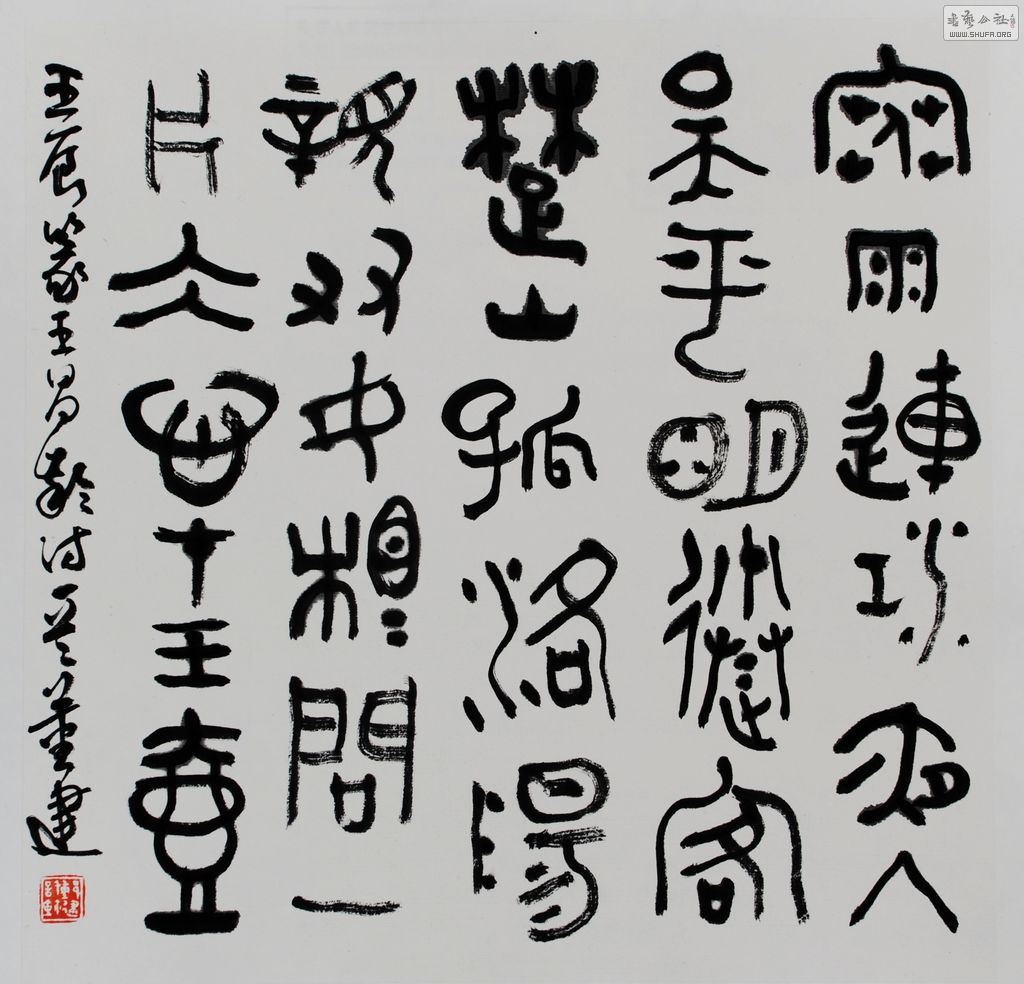 寒雨連江夜入
吳平明送客
楚山孤洛陽
親友如相問一
片冰心在玉壺
壬辰篆王昌齡詩一首董建
書藝公社
WWW.SHUFA.ORG